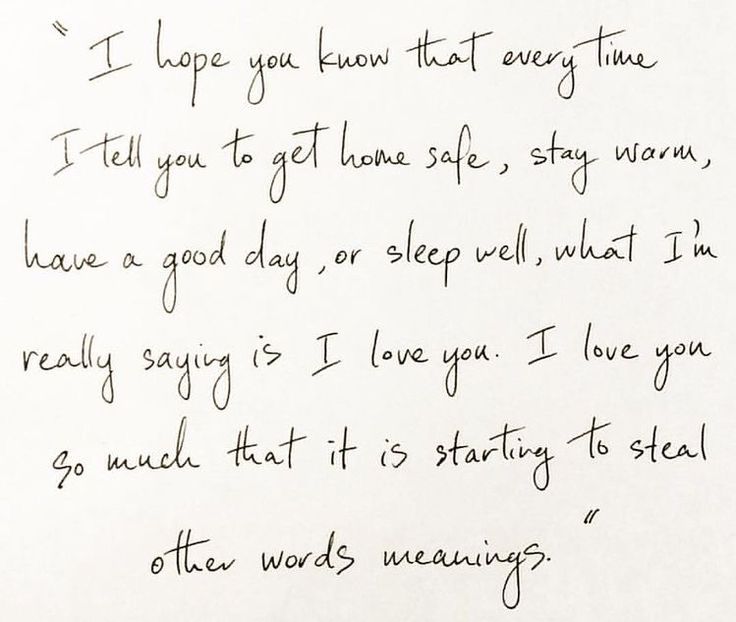 "I hope you know that every time
I tell you to get home safe, stay warm,
have a good day, or sleep well, what I'm
really saying is I love you. I love you
so much that it is starting to steal
other words meanings."